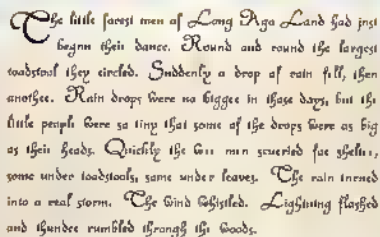 The little forest men of Long Ago Land had just
begun their dance. Round and round the largest
toadstool they circled. Suddenly a drop of rain fell, then
another. Rain drops were no bigger in those days, but the
little people were so tiny that some of the drops were as big
as their heads. Quickly the wee men scurried for shelter,
some under toadstools, some under leaves. The rain turned
into a real storm. The wind whistled. Lightning flashed
and thunder rumbled through the woods.